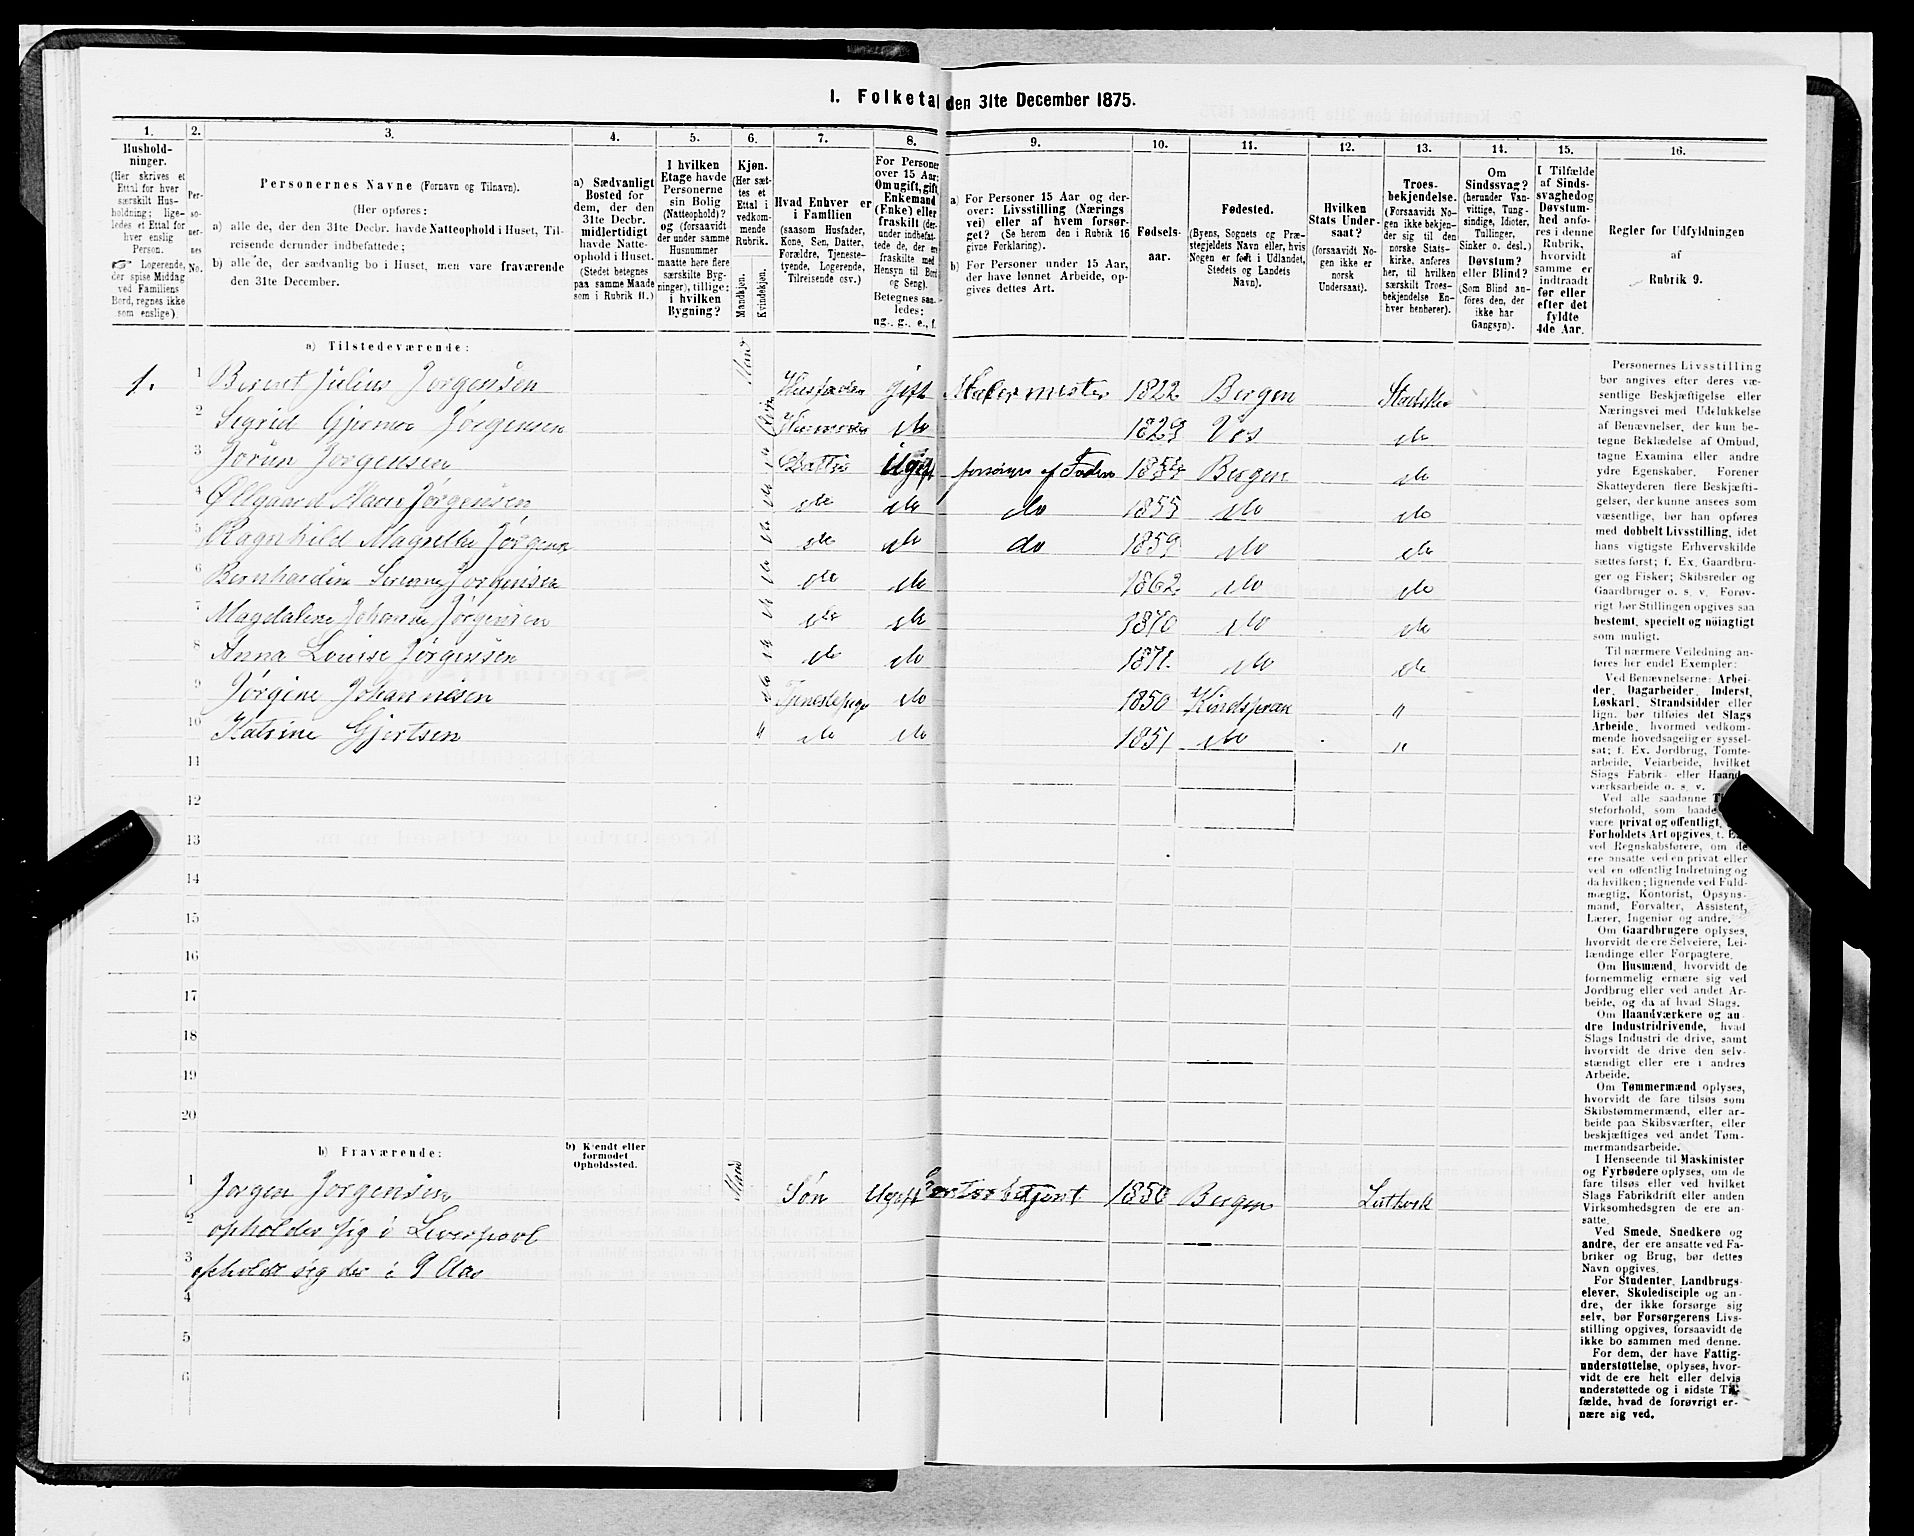 1. Folketal den 31te December 1875.
1. 2. 3. 4. 5. 6. 7. 8. 9. 10. 11. 12. 13. 14. 15. 16.
Hushold-
ninger.
(Her skrives et
Ettal for hver
særskilt Hus-
holdning; lige-
ledes et Ettal for
hver enslig
Person.
☞ Logerende,
der spise Middag
ved Familiens
Bord, regnes ikke
som enslige).
Per-
so-
ner-
nes
No.
Personernes Navne (Fornavn og Tilnavn).
(Her opføres:
a) alle de, der den 31te Decbr. havde Natteophold i Huset, Til-
reisende derunder indbefattede;
b) alle de, der sædvanlig bo i Huset, men vare fraværende
den 31te December.
a) Sædvanligt
Bosted for
dem, der den
31te Decbr.
midlertidigt
havde Natte-
ophold i Huset.
(Stedet betegnes
paa samme Maade
som i Rubrik 11.)
I hvilken
Etage havde
Personerne
sin Bolig
(Natteophold)?
og (forsaavidt
der under samme
Husnummer
maatte høre flere
særskilte Byg-
ninger), tillige:
i hvilken
Bygning?
Kjøn.
(Her sæt-
tes et
Ettal i
vedkom-
mende
Rubrik.
Mandkjøn.
Kvindekjøn.
Hvad Enhver er
i Familien
(saasom Husfader,
Kone, Søn, Datter,
Forældre, Tjeneste-
tyende, Logerende,
Tilreisende osv.)
For Personer
over 15 Aar:
Om ugift, gift,
Enkemand
(Enke) eller
fraskilt (der-
under indbefat-
tede de, der ere
fraskilte med
Hensyn til Bord
og Seng).
Betegnes saa-
ledes:
ug., g., e., f.
a) For Personer 15 Aar og der-
over: Livsstilling (Nærings
vei) eller af hvem forsør-
get? (Se herom den i Rubrik 16
givne Forklaring).
b) For Personer under 15 Aar,
der have lønnet Arbeide, op-
gives dettes Art.
Fødsels-
aar.
Fødested.
(Byens, Sognets og Præ-
stegjeldets Navn eller, hvis
Nogen er født i Udlandet,
Stedets og Landets
Navn).
Hvilken
Stats Under-
saat?
(forsaavidt No-
gen ikke er
norsk
Undersaat).
Troes-
bekjendelse.
(Forsaavidt No-
gen ikke bekjen-
der sig til den
norske Stats-
kirke, anføres
her, til hvilken
særskilt Troes-
bekjendelse En-
hver henhører).
Om
Sindssvag?
(herunder Van-
vittige, Tung-
sindige, Idioter,
Tullinger,
Sinker o. desl.)
Døvstum?
eller Blind?
(Som Blind an-
føres den, der
ikke har
Gangsyn).
I Tilfælde
af Sinds-
svaghed og
Døvstum-
hed anfø-
res i denne
Rubrik,
hvorvidt
samme er
indtraadt
før eller
efter det
fyldte
4de Aar.
Regler for Udfyldningen
af
Rubrik 9.
a) Tilstedeværende:
1. 1 Bernet Julius Jørgensen Mand Husfader gift Malermester 1822 Bergen Statsk.
2 Sigrid Gjermea Jørgensen Husmoder do 1829 Vos do
3 Jørun Jorgensen Datter Ugift forsørges af Faderen 1854 Bergen do
4 Øllgaard Maren Jørgensen do do do 1855 do do
5 Ragnhild Magrethe Jørgensen do do do 1859 do do
6 Bernhardine Serenne Jorgensen do do 1862 do do
7 Magdalene Johanne Jørgensen do do 1870 do do
8 Anna Louise Jørgensen do do 1871 do do
9 Jørgine Johannesen Tjenestepige do 1850 "
10 Katrine Gjertsen " do do 1851 do "
11
12
13
14
15
16
17
18
19
20
b) Fraværende:
b) Kjendt eller
formodet
Opholdssted.
1 Jorgen Jorgensen Mand Søn Ugift Contorbetjent 1850 Bergen Luthersk
2 opholder sig i Liverpool
3 opholdt sig der i 9 Aar
4
5
6
Personernes Livsstilling
bør angives efter deres væ-
sentlige Beskjæftigelse eller
Næringsvei med Udelukkelse
af Benævnelser, der kun be-
tegne Beklædelse af Ombud,
tagne Examina eller andre
ydre Egenskaber. Forener
Skatteyderen flere Beskjæfti-
gelser, der kunne ansees som
væsentlige, bør han opføres
med dobbelt Livsstilling, idet
hans vigtigste Erhvervskilde
sættes først; f. Ex. Gaardbru-
ger og Fisker; Skibsreder og
Gaardbruger o. s. v. Forøv-
rigt bør Stillingen opgives saa
bestemt, specielt og nøiagtigt
som muligt.
Til nærmere Veiledning an-
føres her endel Exempler:
Ved Benævnelserne: Arbei-
der, Dagarbeider, Inderst,
Løskarl, Strandsidder eller
lign. bør tilføies det Slags
Arbeide, hvormed vedkom-
mende hovedsagelig er syssel-
sat; f. Ex. Jordbrug, Tomte-
arbeide, Veiarbeide, hvilket
Slags Fabrik- eller Haand-
værksarbeide o. s. v.
Ved alle saadanne
steforhold, som baade
være privat og offentligt,
Forholdets Art opgives, t. Ex.
ved Regnskabsførere, om de
ere ansatte ved en privat eller
ved en offentlig Indretning og
da hvilken; lignende ved Fuld-
mægtig, Kontorist, Opsyns-
mand, Forvalter, Assistent,
Lærer, Ingeniør og andre.
Om Gaardbrugere oplyses,
hvorvidt de ere Selveiere, Lei-
lændinge eller Forpagtere.
Om Husmænd, hvorvidt de
fornemmelig ernære sig ved
Jordbrug eller ved andet Ar-
beide, og da af hvad Slags.
Om Haandværkere og an-
dre Industridrivende, hvad
Slags Industri de drive, samt
hvorvidt de drive den selv-
stændigt eller ere i andres
Arbeide.
Om Tømmermænd oplyses,
hvorvidt de fare tilsøs som
Skibstømmermænd, eller ar-
beide paa Skibsværfter, eller
beskjæftiges ved andet Tøm-
mermandsarbeide.
I Henseende til Maskinister
og Fyrbødere oplyses, om de
fare tilsøs eller ved hvilket
Slags Fabrikdrift eller anden
Virksomhedsgren de ere an-
satte.
Ved Smede, Snedkere og
andre, der ere ansatte ved Fa-
briker og Brug, bør dettes
Navn opgives.
For Studenter, Landbrugs-
elever, Skoledisciple og an-
dre, der ikke forsørge sig
selv, bør Forsørgerens Livs-
stilling opgives, forsaavidt de
ikke bo sammen med denne.
For dem, der have Fattig-
understøttelse, oplyses, hvor-
vidt de ere helt eller delvis
understøttede og i sidste Til-
fælde, hvad de forøvrigt er-
nære sig ved.